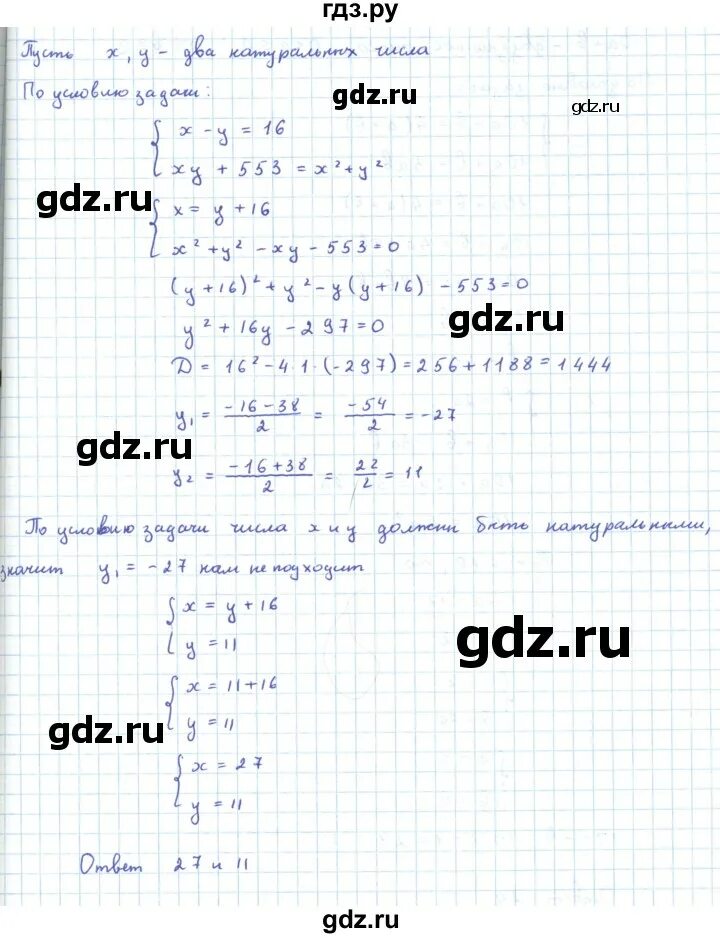 гдз.ру
Пусть x, y - два натуральных числа
По условию задачи:
gdz.ru
gdz.ru
{ x - y = 16
xy + 553 = x² + y²
gdz.ru
{ x = y + 16
x² + y² - xy - 553 = 0
(y+16)² + y² - y(y+16) - 553 = 0
gdz.ru
y² + 16y - 297 = 0
D = 16² - 4·1·(-297) = 256 + 1188 = 1444
y₁ = (-16-38)/2 = -54/2 = -27
gdz.ru
y₂ = (-16+38)/2 = 22/2 = 11
По условию задачи числа x и y должны быть натуральными,
значит y₁ = -27 нам не подходит
{ x = y + 16
y = 11
gdz.ru
{ x = 11 + 16
y = 11
gdz.ru
{ x = 27
y = 11
Ответ 27 и 11
gdz.ru